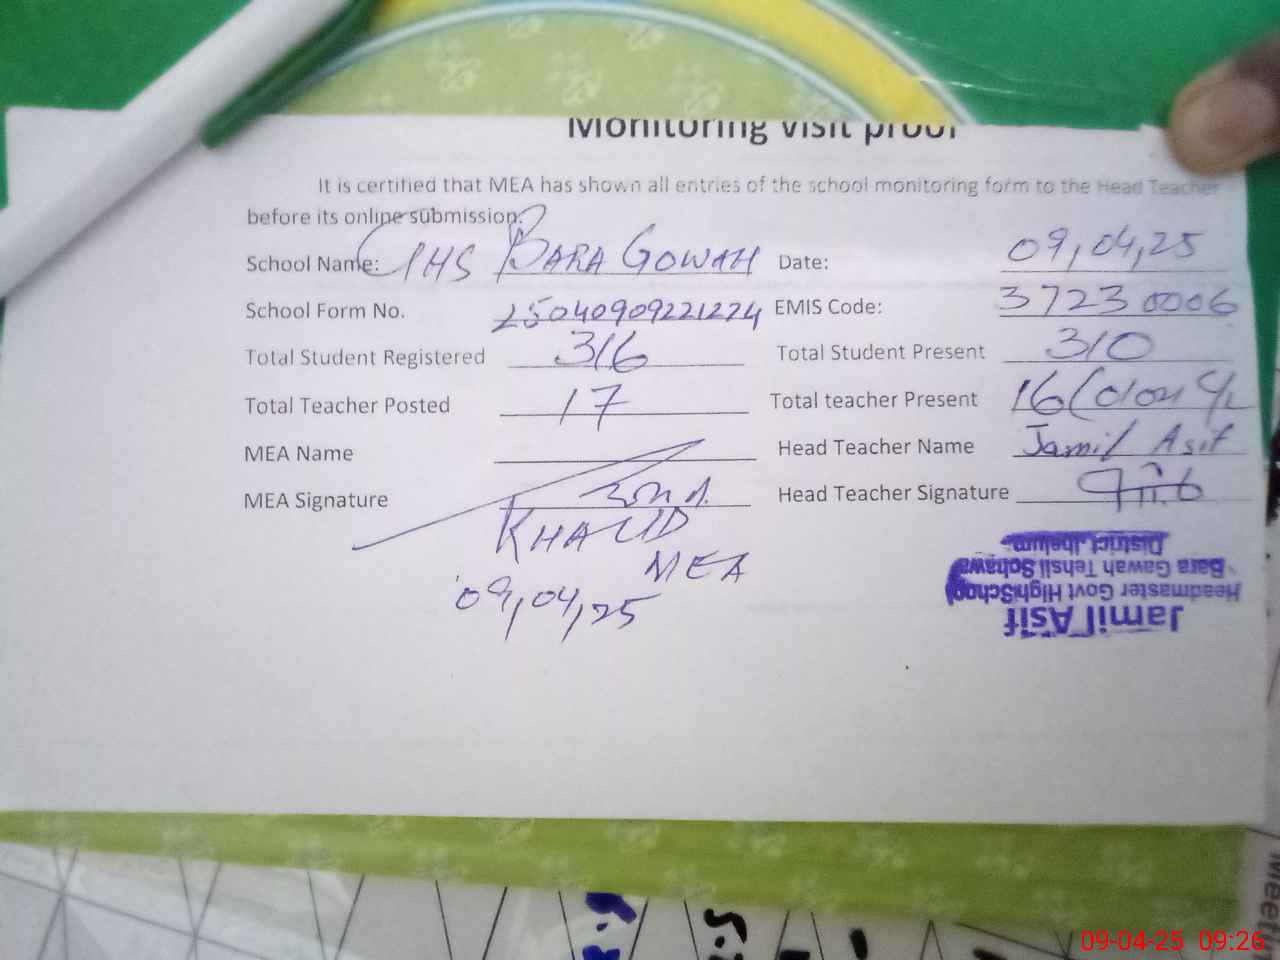 Monitoring visit proof
It is certified that MEA has shown all entries of the school monitoring form to the Head Teacher
before its online submission.
School Name: GHS BARA GOWAH Date: 09,04,25
School Form No. 25040909221224 EMIS Code: 37230006
Total Student Registered 316 Total Student Present 310
Total Teacher Posted 17 Total teacher Present 16 (01 on C/L
MEA Name Head Teacher Name Jamil Asif
MEA Signature Head Teacher Signature
KHALID
MEA
09,04,25
Jamil Asif
Headmaster Govt High School
Bara Gawah Tehsil Sohawa
District Jhelum
09-04-25 09:26